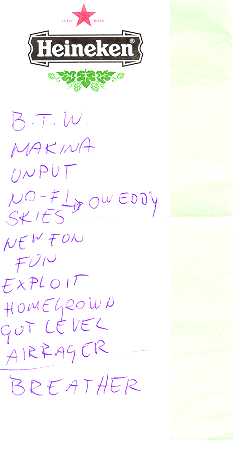 Heineken
B.T.W
MAKINA
UNPUT
NO-FI → OW EDDY
SKIES
NEW FON
FUN
EXPLOIT
HOMEGROWN
GUT LEVEL
AIRRAGER
BREATHER